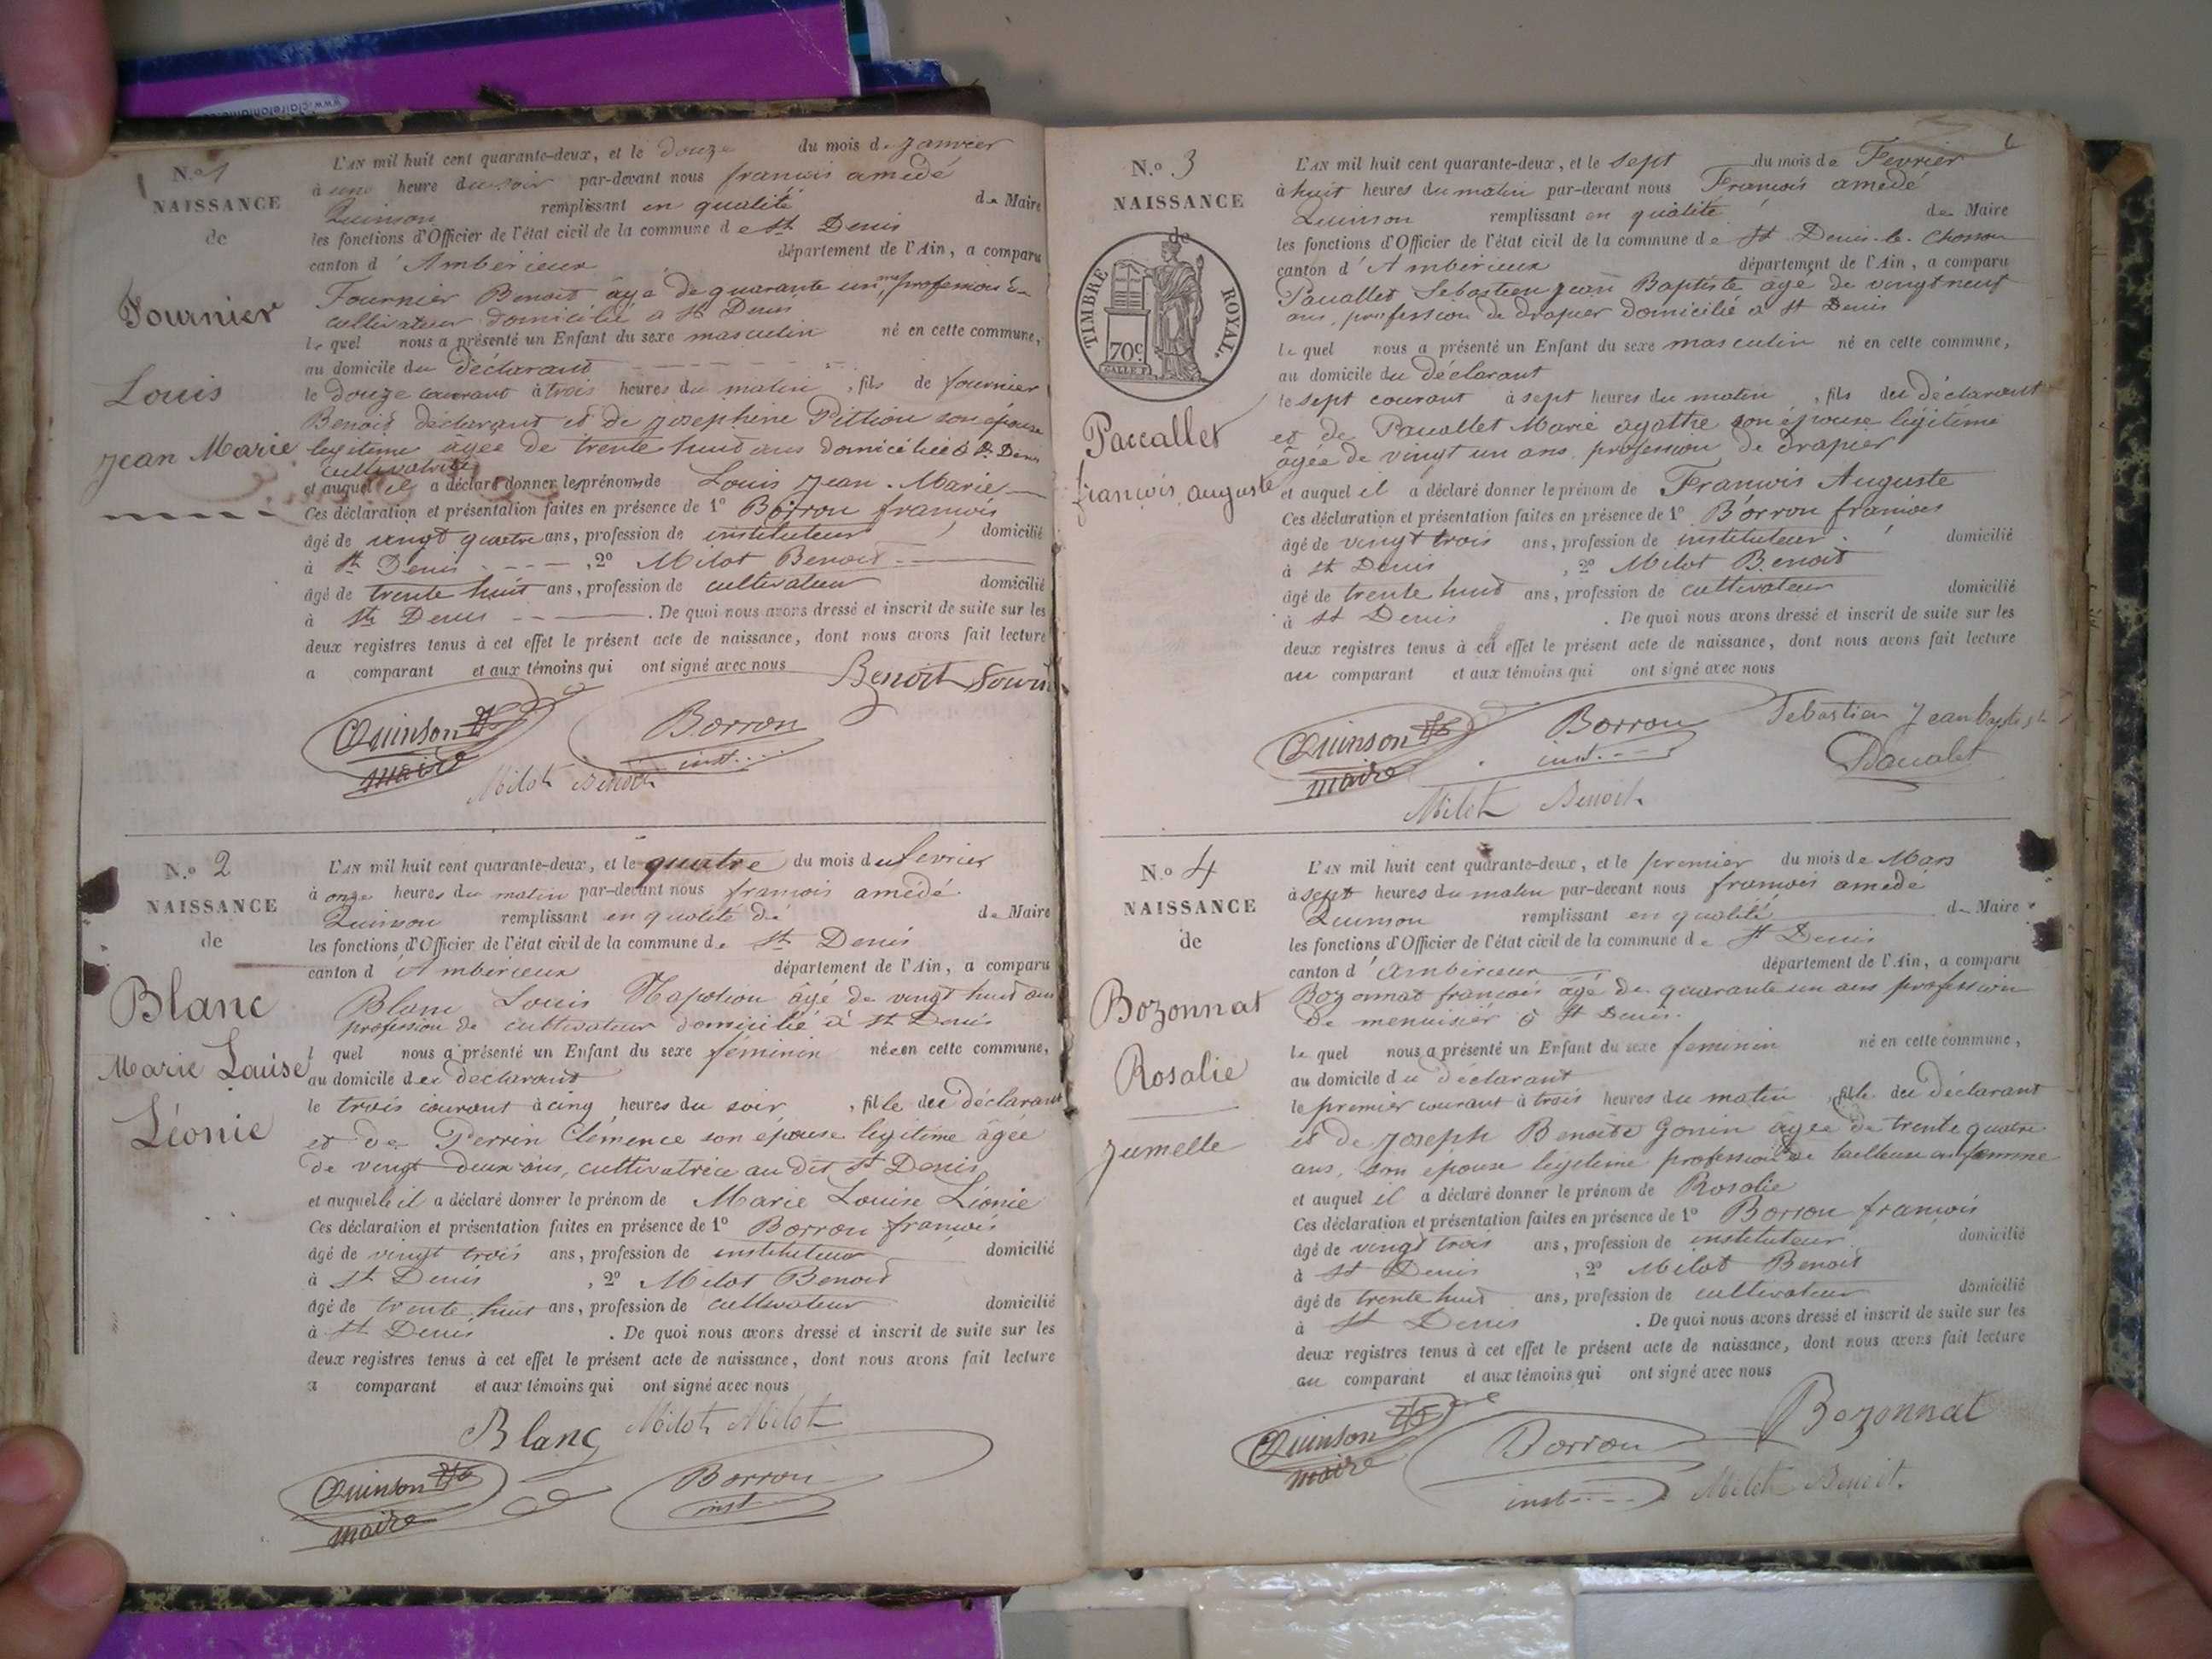 N.o 1
NAISSANCE
de
Fournier
Louis
Jean Marie
L'AN mil huit cent quarante-deux, et le douze du mois de Janvier
à une heure du soir par-devant nous francois amédé
Quinson remplissant en qualité de Maire
les fonctions d'Officier de l'état civil de la commune de St Denis
canton d'Amberieux département de l'Ain, a comparu
Fournier Benoit âgé de quarante un ans profession de
cultivateur domicilié à St Denis
le quel nous a présenté un Enfant du sexe masculin né en cette commune,
au domicile du déclarant
le douze courant à trois heures du matin, fils de fournier
Benoit déclarant et de Josephene Pittion son épouse
legitime âgée de trente huit ans domiciliée à St Denis
cultivatrice
et auquel il a déclaré donner les prénoms de Louis Jean. Marie
Ces déclaration et présentation faites en présence de 1o Borron francois
âgé de vingt quatre ans, profession de instituteur, domicilié
à St Denis, 2o Milot Benoit
âgé de trente huit ans, profession de cultivateur domicilié
à St Denis. De quoi nous avons dressé et inscrit de suite sur les
deux registres tenus à cet effet le présent acte de naissance, dont nous avons fait lecture
a comparant et aux témoins qui ont signé avec nous
Benoit Fourn
Quinson
maire
Borron
inst...
Milot Benoit
N.o 2
NAISSANCE
de
Blanc
Marie Lauise
Léonie
L'AN mil huit cent quarante-deux, et le quatre du mois du fevrier
à onze heures du matin par-devant nous francois amédé
Quinson remplissant en qualité de de Maire
les fonctions d'Officier de l'état civil de la commune de St Denis
canton d'Amberieux département de l'Ain, a comparu
Blanc Louis Napolion âgé de vingt huit ans
profession de cultivateur domicilié à St Denis
l quel nous a présenté un Enfant du sexe féminin née en cette commune,
au domicile du declarant
le trois courant à cinq heures du soir, fille du déclarant
et de Perrin Clémence son épouse legitime âgée
de vingt deux ans, cultivatrice au dit St Denis
et auquelle il a déclaré donner le prénom de Marie Louise Léonie
Ces déclaration et présentation faites en présence de 1o Borron francois
âgé de vingt trois ans, profession de instituteur domicilié
à St Denis, 2o Milot Benoit
âgé de trente huit ans, profession de cultivateur domicilié
à St Denis. De quoi nous avons dressé et inscrit de suite sur les
deux registres tenus à cet effet le présent acte de naissance, dont nous avons fait lecture
a comparant et aux témoins qui ont signé avec nous
Blanc Milot Milot
Quinson
maire
Borron
inst
N.o 3
NAISSANCE
de
TIMBRE ROYAL.
70c
Paccallet
francois, auguste
L'AN mil huit cent quarante-deux, et le sept du mois de Fevrier
à huit heures du matin par-devant nous Francois amédé
Quinson remplissant en qualité de Maire
les fonctions d'Officier de l'état civil de la commune de St Denis-le-Chosson
canton d'Amberieux département de l'Ain, a comparu
Pacallet Sebastien jean Baptiste âgé de vingt neuf
ans, profession de drapier domicilié à St Denis
le quel nous a présenté un Enfant du sexe masculin né en cette commune,
au domicile du déclarant
le sept courant à sept heures du matin, fils du déclarant
et de Pacallet Marie agathe son épouse légitime
âgée de vingt un ans profession de drapier
et auquel il a déclaré donner le prénom de Francois Auguste
Ces déclaration et présentation faites en présence de 1o Borron francois
âgé de vingt trois ans, profession de instituteur domicilié
à St Denis, 2o Milot Benoit
âgé de trente huit ans, profession de cultivateur domicilié
à St Denis. De quoi nous avons dressé et inscrit de suite sur les
deux registres tenus à cet effet le présent acte de naissance, dont nous avons fait lecture
au comparant et aux témoins qui ont signé avec nous
Quinson
maire
Borron
inst.
Sebastien Jean baptiste
Pacalet
Milot Benoit.
N.o 4
NAISSANCE
de
Bozonnat
Rosalie
Jumelle
L'AN mil huit cent quarante-deux, et le premier du mois de Mars
à sept heures du matin par-devant nous francois amédé
Quinson remplissant en qualité de Maire
les fonctions d'Officier de l'état civil de la commune de St Denis
canton d'amberieux département de l'Ain, a comparu
Bozonnat francois âgé de quarante un ans profession
de menuisier à St Denis.
le quel nous a présenté un Enfant du sexe feminin né en cette commune,
au domicile du déclarant
le premier courant à trois heures du matin, fille du déclarant
et de Joseph Benoite Gonin âgée de trente quatre
ans, son épouse légitime profession de tailleuse femme
et auquel il a déclaré donner le prénom de Rosalie
Ces déclaration et présentation faites en présence de 1o Borron francois
âgé de vingt trois ans, profession de instituteur domicilié
à St Denis, 2o Milot Benoit
âgé de trente huit ans, profession de cultivateur domicilié
à St Denis. De quoi nous avons dressé et inscrit de suite sur les
deux registres tenus à cet effet le présent acte de naissance, dont nous avons fait lecture
au comparant et aux témoins qui ont signé avec nous
Quinson
maire
Borron
inst
Bozonnat
Milot Benoit.